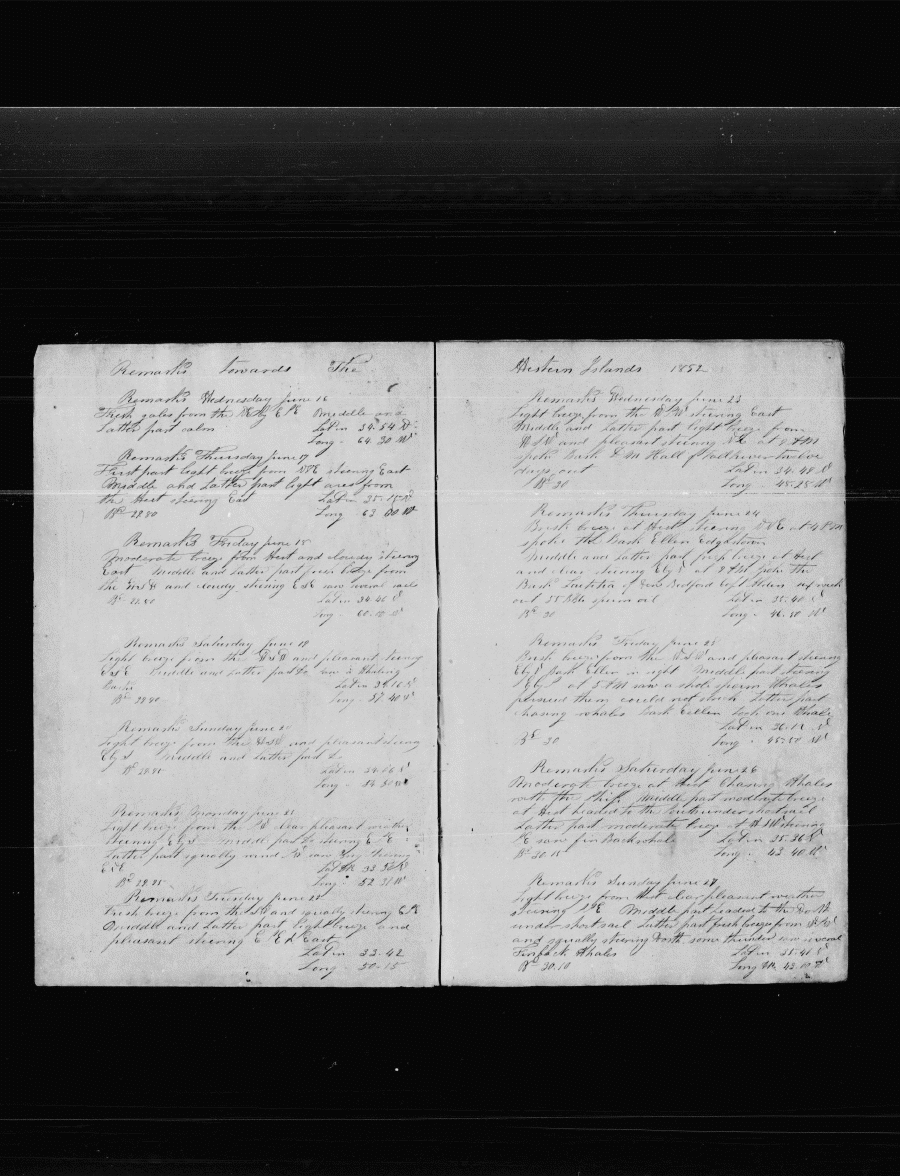 Remarks towards The
Remarks Wednesday June 16
Fresh gales from the Middle and
Latter part calm Lat in 34.54 N
Long - 64.30 W
Remarks Thursday June 17
First part light breeze from NNE steering East
Middle and Latter part light airs from
the West steering East Lat in 35.15 N
Br 29.80 Long 63 00 W
Remarks Friday June 18
Moderate breeze from West and cloudy steering
East Middle and Latter part fresh breeze from
the and cloudy steering ESE saw several sails
Br 29.80 Lat in 34.46 N
Long - 60.10 W
Remarks Saturday June 19
Light breeze from the WSW and pleasant steering
ESE Middle and Latter part Do saw a Whaling
Bark Lat in 34.16 N
Br 29.90 Long - 57.40 W
Remarks Sunday June 20
Light breeze from the WSW and pleasant steering
E by S Middle and Latter part Do
Br 29.95 Lat in 34.06 N
Long - 54 50 W
Remarks Monday June 21
Light breeze from the clear pleasant weather
steering E by S Middle part Do steering E
Latter part squally wind saw steering
ESE Lat 33 56 N
Br 29.95 Long - 52 31 W
Remarks Tuesday June 22
Fresh breeze from the and squally steering
Midddle and Latter part light breeze and
pleasant steering E East
Lat in 33.42
Long - 50-15
Western Islands 1852
Remarks Wednesday June 23
Light breeze from the steering East
Middle and Latter part light breeze from
WSW and pleasant steering NE at 9 AM
spoke Bark D M Hall of Fall River twelve
days out Lat in 34.48 N
Br 30 Long - 48.25 W
Remarks Thursday June 24
Brisk breeze at West steering NNE at 4 PM
spoke the Bark Ellen Edgartown
Middle and Latter part fresh breeze at West
and clear steering E by S at 9 AM spoke the
Bark of New Bedford Capt Alden
out 55 Bbls sperm oil Lat in 35.40 N
Br 30 Long - 46.50 W
Remarks Friday June 25
Brisk breeze from the WSW and pleasant steering
E by S Bark Ellen in sight Middle part steering
E by S at 5 AM saw a shole sperm Whales
pursued them could not strike Latter part
chasing whales Bark Ellen took one Whale
Lat in 36.12 N
Br 30 Long - 45.50 W
Remarks Saturday June 26
Moderate breeze at West Chasing Whales
with the Ship Middle part moderate breeze
at West headed to the South under short sail
Latter part moderate breeze at WSW steering
E saw finback whale Lat in 35.36 N
Br 30.15 Long - 43 40 W
Remarks Sunday June 27
Light breeze from West clear pleasant weather
steering Middle part headed to the
under short sail Latter part fresh breeze from
and squally steering North some thunder saw several
Finback Whales Lat in 35.41 N
Br 30.10 Long 43.10 W